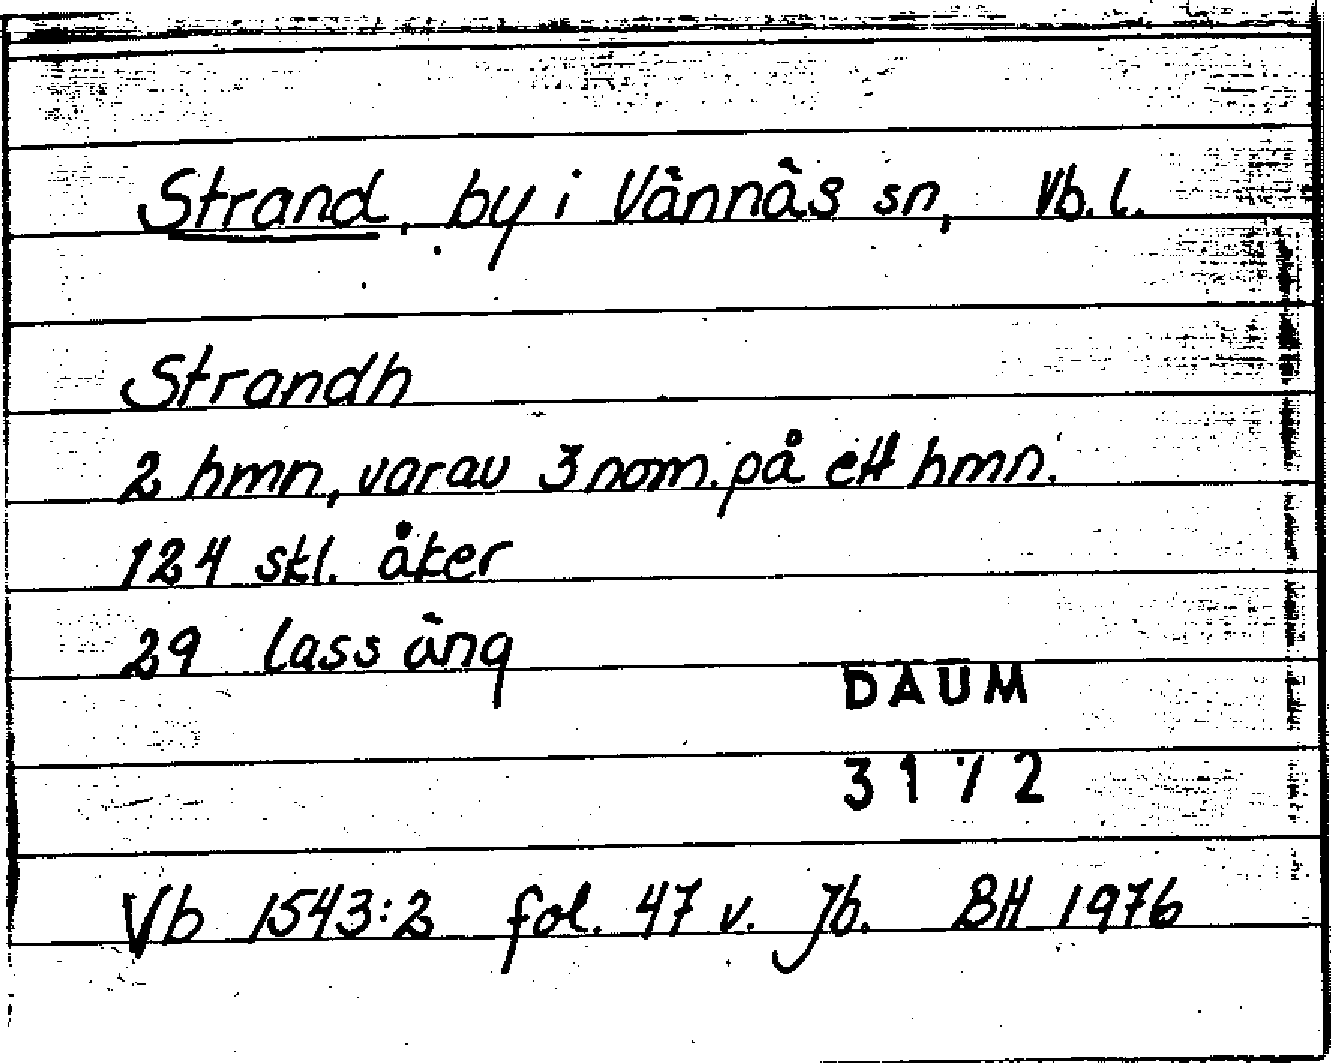 Strand, by i Vännäs sn, Vb. l.
Strandh
2 hmn, varav 3 nom. på ett hmn.
124 skl. åker
29 lass äng
DAUM
3172
Vb 1543:2 fol. 47 v. Jb. BH 1976